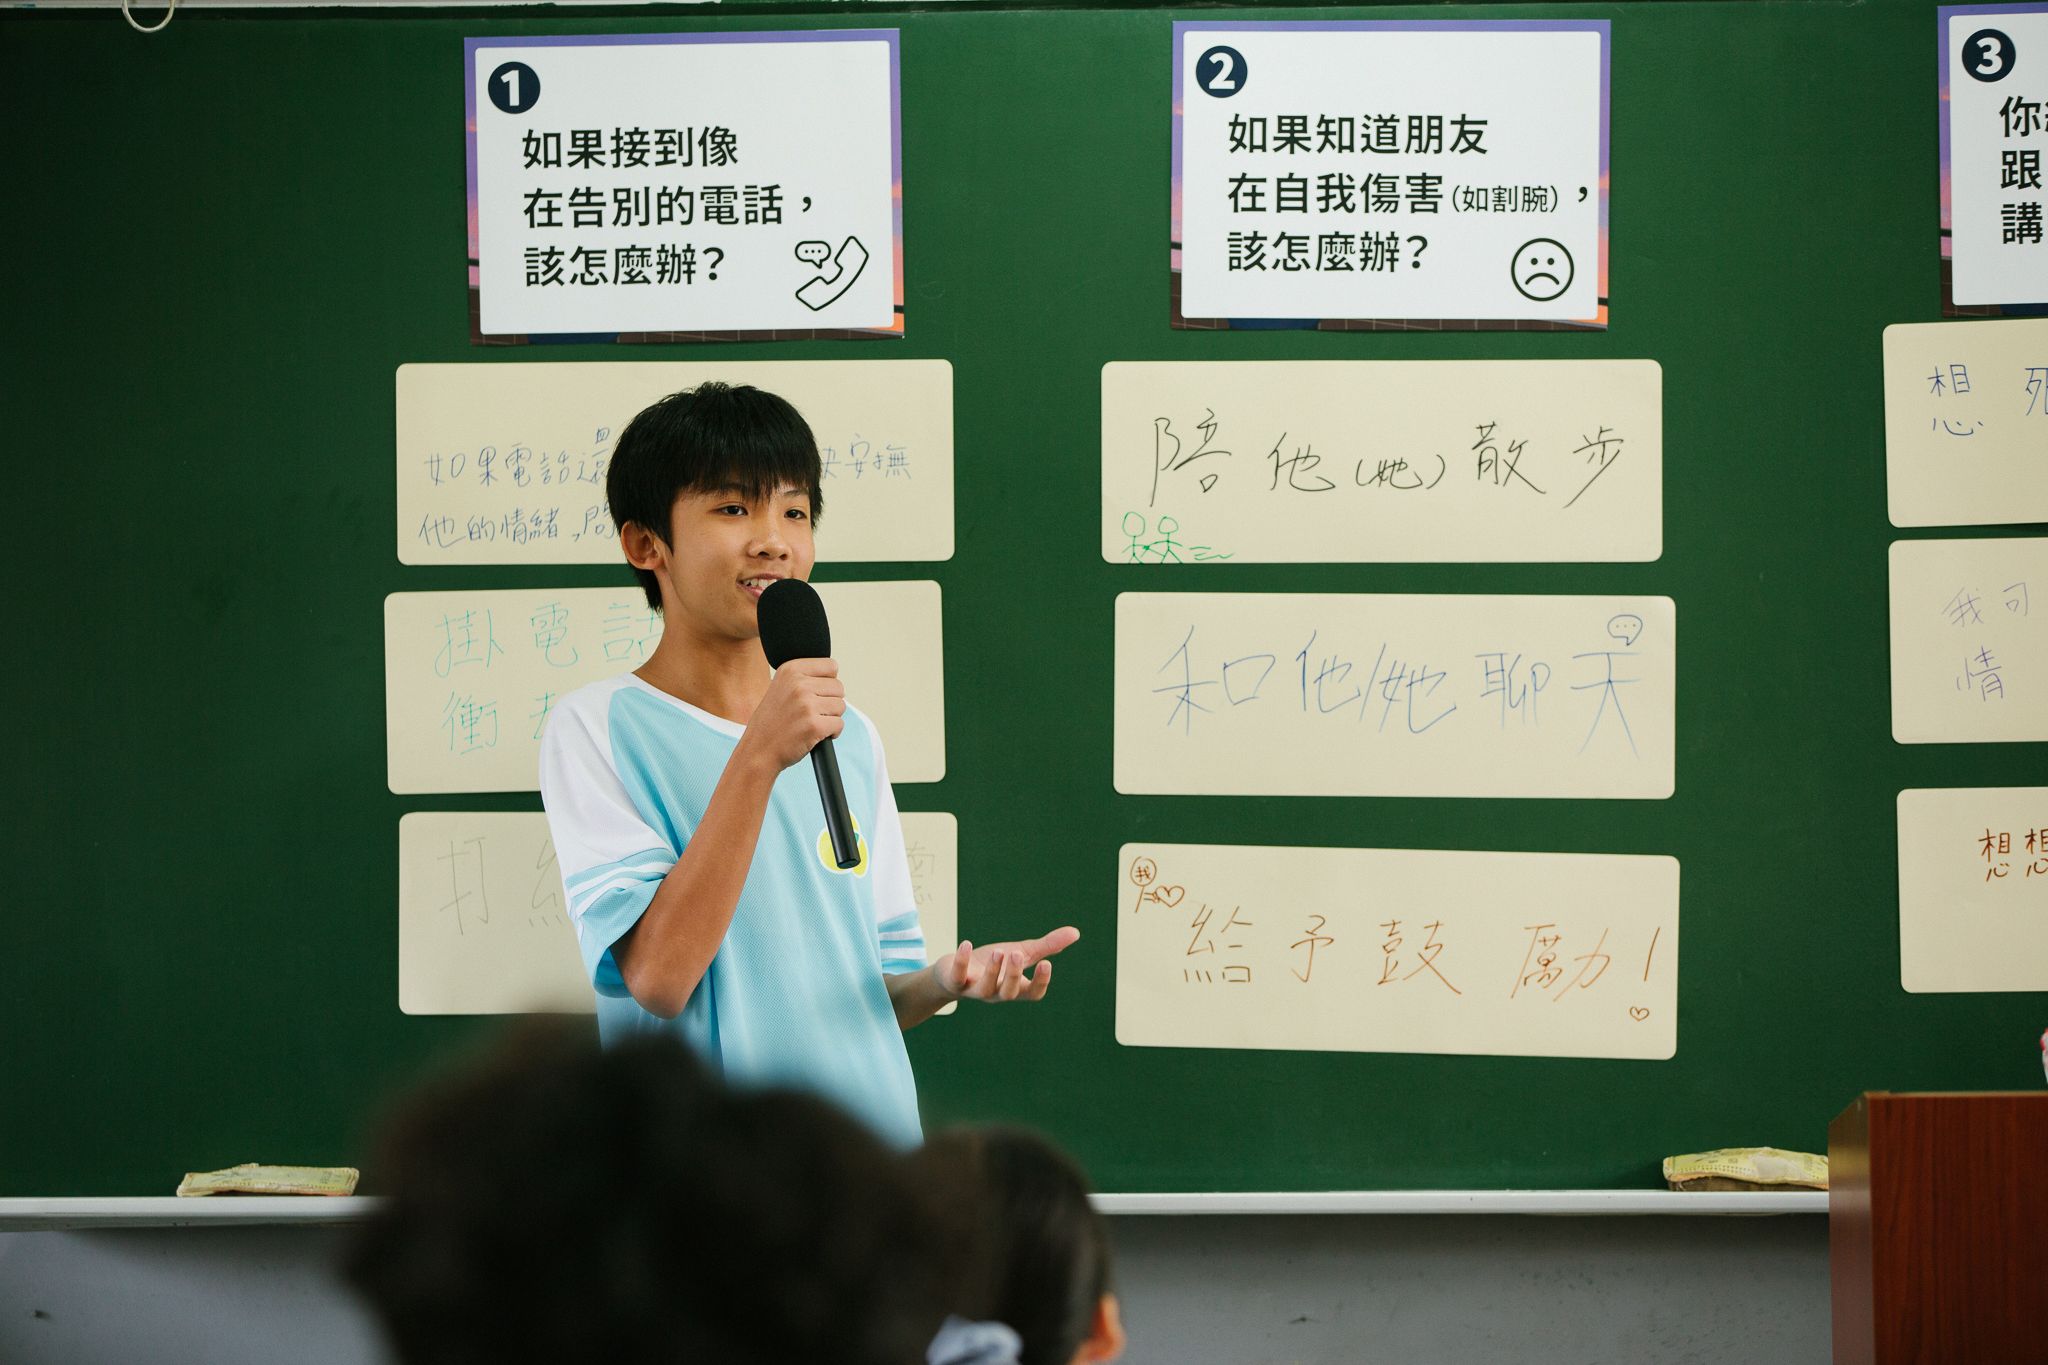 1
如果接到像
在告別的電話，
該怎麼辦？
如果電話還
安撫
他的情緒，問
掛電話
衝去
打給
2
如果知道朋友
在自我傷害（如割腕），
該怎麼辦？
陪他（她）散步
和他/她聊天
我
給予鼓勵！
3
你
跟
講
想死
我可
情
想想